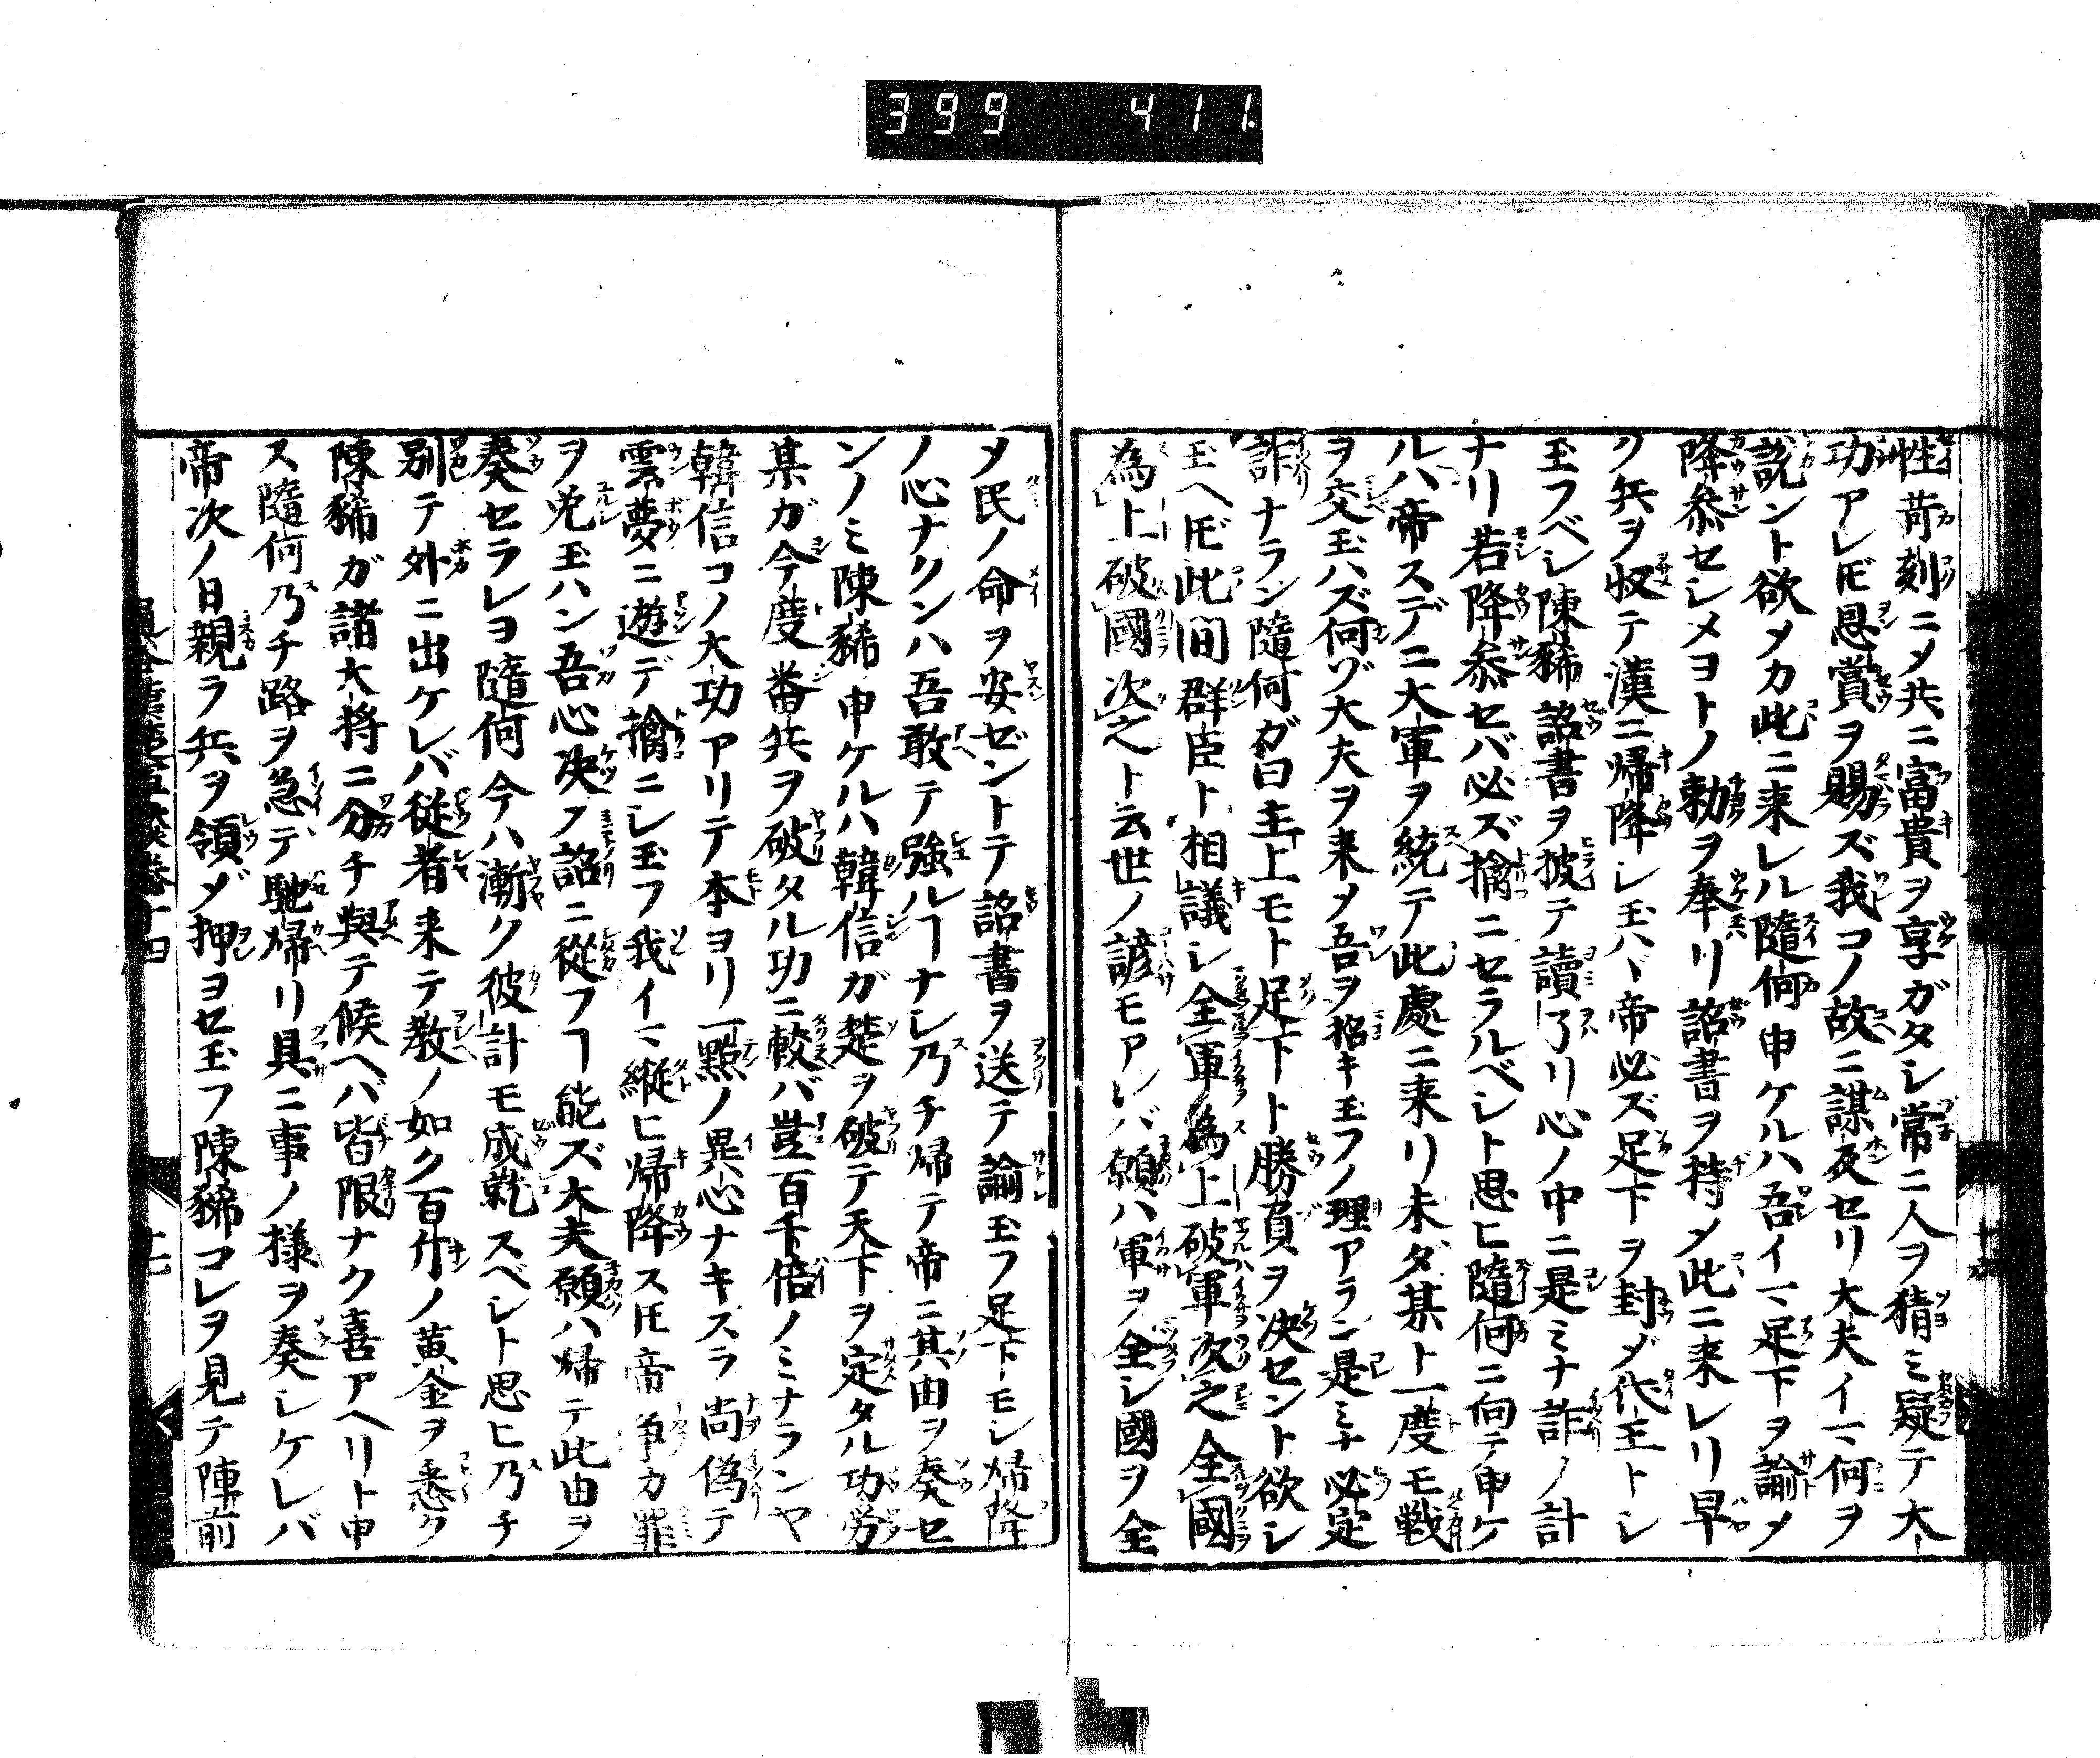 399 411.
性苛刻ニメ共ニ富貴ヲ享ガタシ常ニ人ヲ猜ミ疑テ大
功アレ𪜈恩賞ヲ賜ズ我コノ故ニ謀反セリ大夫イマ何ヲ
説ント欲メカ此ニ来レル隨何申ケルハ吾イマ足下ヲ諭メ
降参セシメヨトノ勅ヲ奉リ詔書ヲ持メ此ニ来レリ早
ク兵ヲ収テ漢ニ帰降シ玉ハヾ帝必ズ足下ヲ封メ代王トシ
玉フベシ陳豨詔書ヲ披テ讀了リ心ノ中ニ是ミナ詐ノ計
ナリ若降参セバ必ズ擒ニセラルベシト思ヒ隨何ニ向テ申ケ
ルハ帝スデニ大軍ヲ統テ此處ニ来リ未ダ某ト一度モ戦
ヲ交玉ハズ何ゾ大夫ヲ来メ吾ヲ招キ玉フノ理アラン是ミナ必定
詐ナラン隨何ガ曰主上モト足下ト勝負ヲ决セント欲シ
玉ヘ𪜈此間群臣ト相議シ全軍為上破軍次之全國
為上破國次之ト云世ノ諺モアレバ願ハ軍ヲ全シ國ヲ全
メ民ノ命ヲ安ゼントテ詔書ヲ送テ諭玉フ足下モシ帰降
ノ心ナクンハ吾敢テ強ルヿナシ乃チ帰テ帝ニ其由ヲ奏セ
ンノミ陳豨申ケルハ韓信ガ楚ヲ破テ天下ヲ定タル功労
某ガ今度番兵ヲ破タル功ニ較バ豈百千倍ノミナランヤ
韓信コノ大功アリテ本ヨリ一點ノ異心ナキスラ尚偽テ
雲夢ニ遊デ擒ニシ玉フ我イマ縦ヒ帰降ス𪜈帝争カ罪
ヲ免玉ハン吾心决メ詔ニ従フヿ能ズ大夫願ハ帰テ此由ヲ
奏セラレヨ隨何今ハ漸ク彼計モ成就スベシト思ヒ乃チ
別テ外ニ出ケレバ従者来テ教ノ如ク百斤ノ黄金ヲ悉ク
陳豨ガ諸大将ニ分チ與テ候ヘバ皆限ナク喜アヘリト申
ス隨何乃チ路ヲ急テ馳帰リ具ニ事ノ様ヲ奏シケレバ
帝次ノ日親ラ兵ヲ領メ押ヨセ玉フ陳豨コレヲ見テ陣前